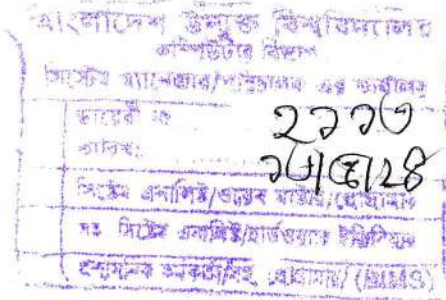 বাংলাদেশ উন্মুক্ত বিশ্ববিদ্যালয়
কম্পিউটার বিভাগ
সিস্টেম ম্যানেজার/পরিচালক এর কার্যালয়
ডায়েরী নং ২১১৩
তারিখ:
সিস্টেম এনালিষ্ট/ওয়েব মাষ্টার/প্রোগ্রামার
সিস্টেম এনালিষ্ট/হার্ডওয়্যার ইঞ্জিনিয়ার
(BIMS)